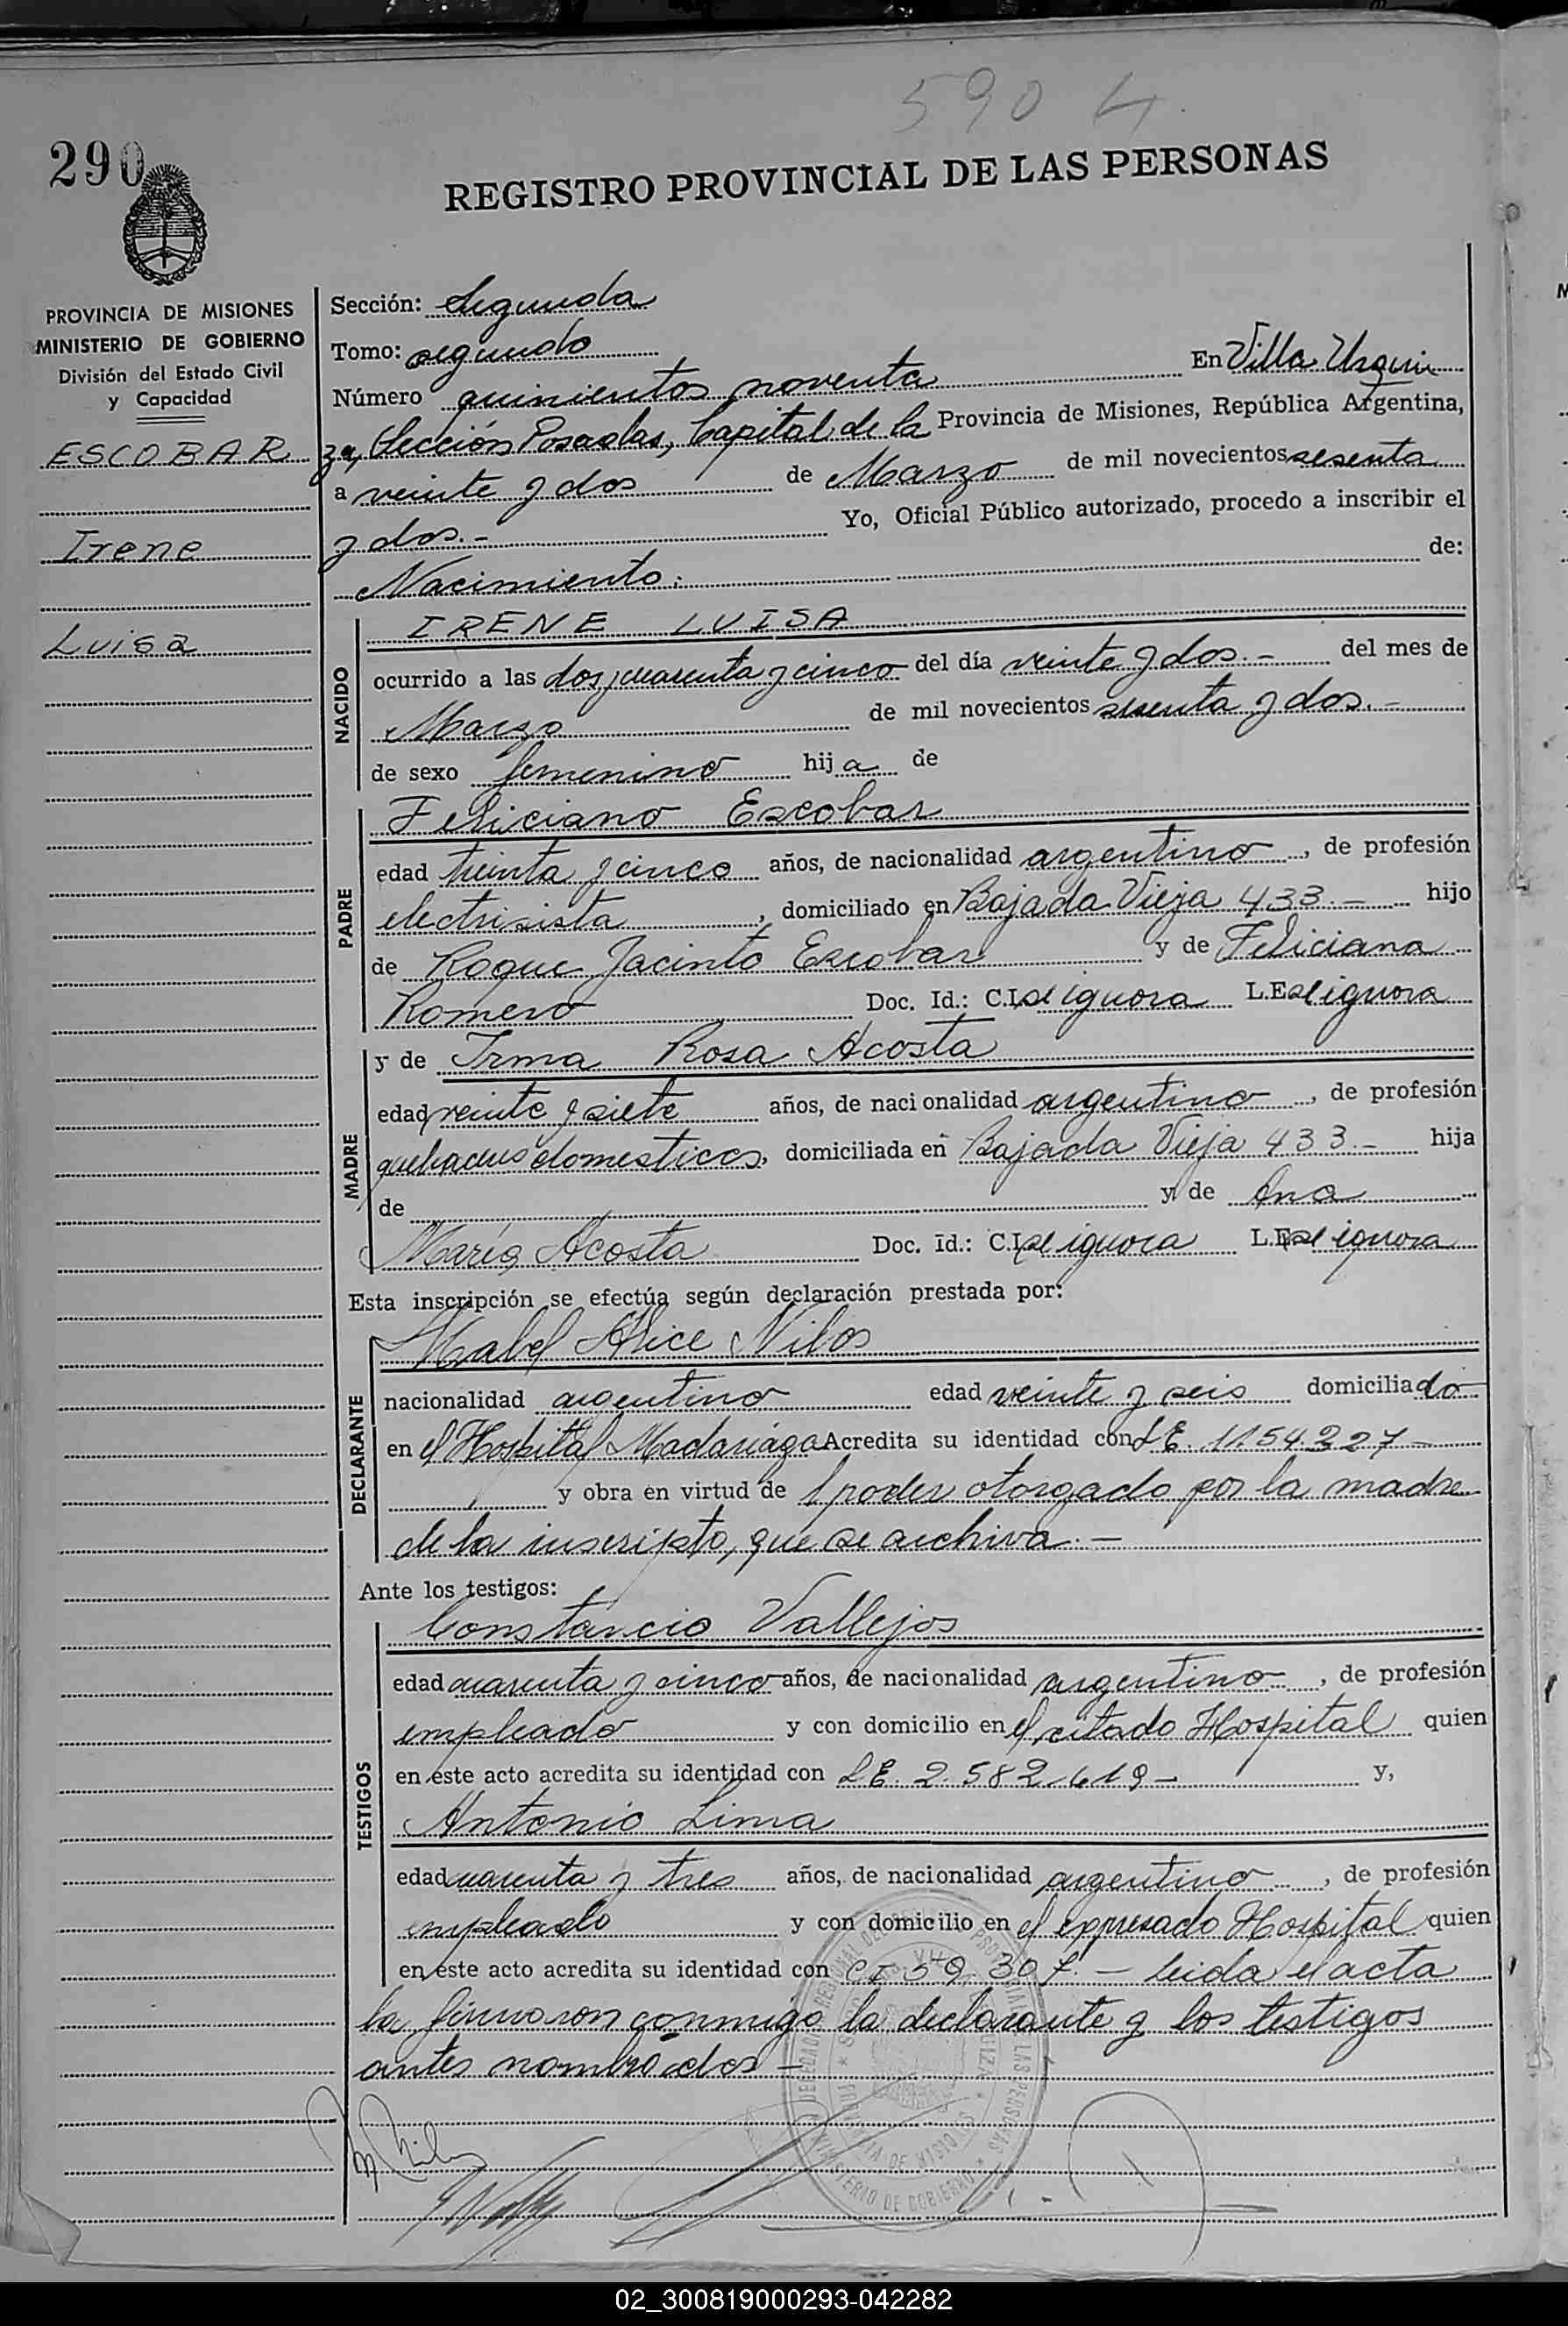 590 4
290
REGISTRO PROVINCIAL DE LAS PERSONAS
PROVINCIA DE MISIONES
MINISTERIO DE GOBIERNO
División del Estado Civil
y Capacidad
ESCOBAR
Irene
Luisa
Sección: Segunda
Tomo: segundo
Número quinientos noventa En Villa Urqui
za, Sección Posadas, Capital de la Provincia de Misiones, República Argentina,
a veinte y dos de Marzo de mil novecientos sesenta
y dos.- Yo, Oficial Público autorizado, procedo a inscribir el
Nacimiento: de:
NACIDO
IRENE LUISA
ocurrido a las dos y cuarenta y cinco del día veinte y dos.- del mes de
Marzo de mil novecientos sesenta y dos.-
de sexo femenino hija de
PADRE
Feliciano Escobar
edad treinta y cinco años, de nacionalidad argentino, de profesión
electrisista, domiciliado en Bajada Vieja 433.- hijo
de Roque Jacinto Escobar y de Feliciana
Romero Doc. Id.: C.I. se ignora L.E. se ignora
MADRE
y de Irma Rosa Acosta
edad veinte y siete años, de nacionalidad argentino, de profesión
quehaceres domesticos, domiciliada en Bajada Vieja 433.- hija
de y de Ana
María Acosta Doc. Id.: C.I. se ignora L.E. se ignora
Esta inscripción se efectúa según declaración prestada por:
DECLARANTE
Mabel Alice Nilos
nacionalidad argentino edad veinte y seis domiciliado
en el Hospital Madariaga Acredita su identidad con L.E. 1154.227-
y obra en virtud de 1 poder otorgado por la madre
de la inscripto, que se archiva.-
Ante los testigos:
TESTIGOS
Constancio Vallejos
edad cuarenta y cinco años, de nacionalidad argentino, de profesión
empleado y con domicilio en el citado Hospital quien
en este acto acredita su identidad con L.E. 2.582.619- y,
Antonio Lima
edad cuarenta y tres años, de nacionalidad argentino, de profesión
empleado y con domicilio en el expresado Hospital quien
en este acto acredita su identidad con C.I. 59.307.- leida el acta
la firmaron conmigo la declarante y los testigos
antes nombrados-
02_300819000293-042282